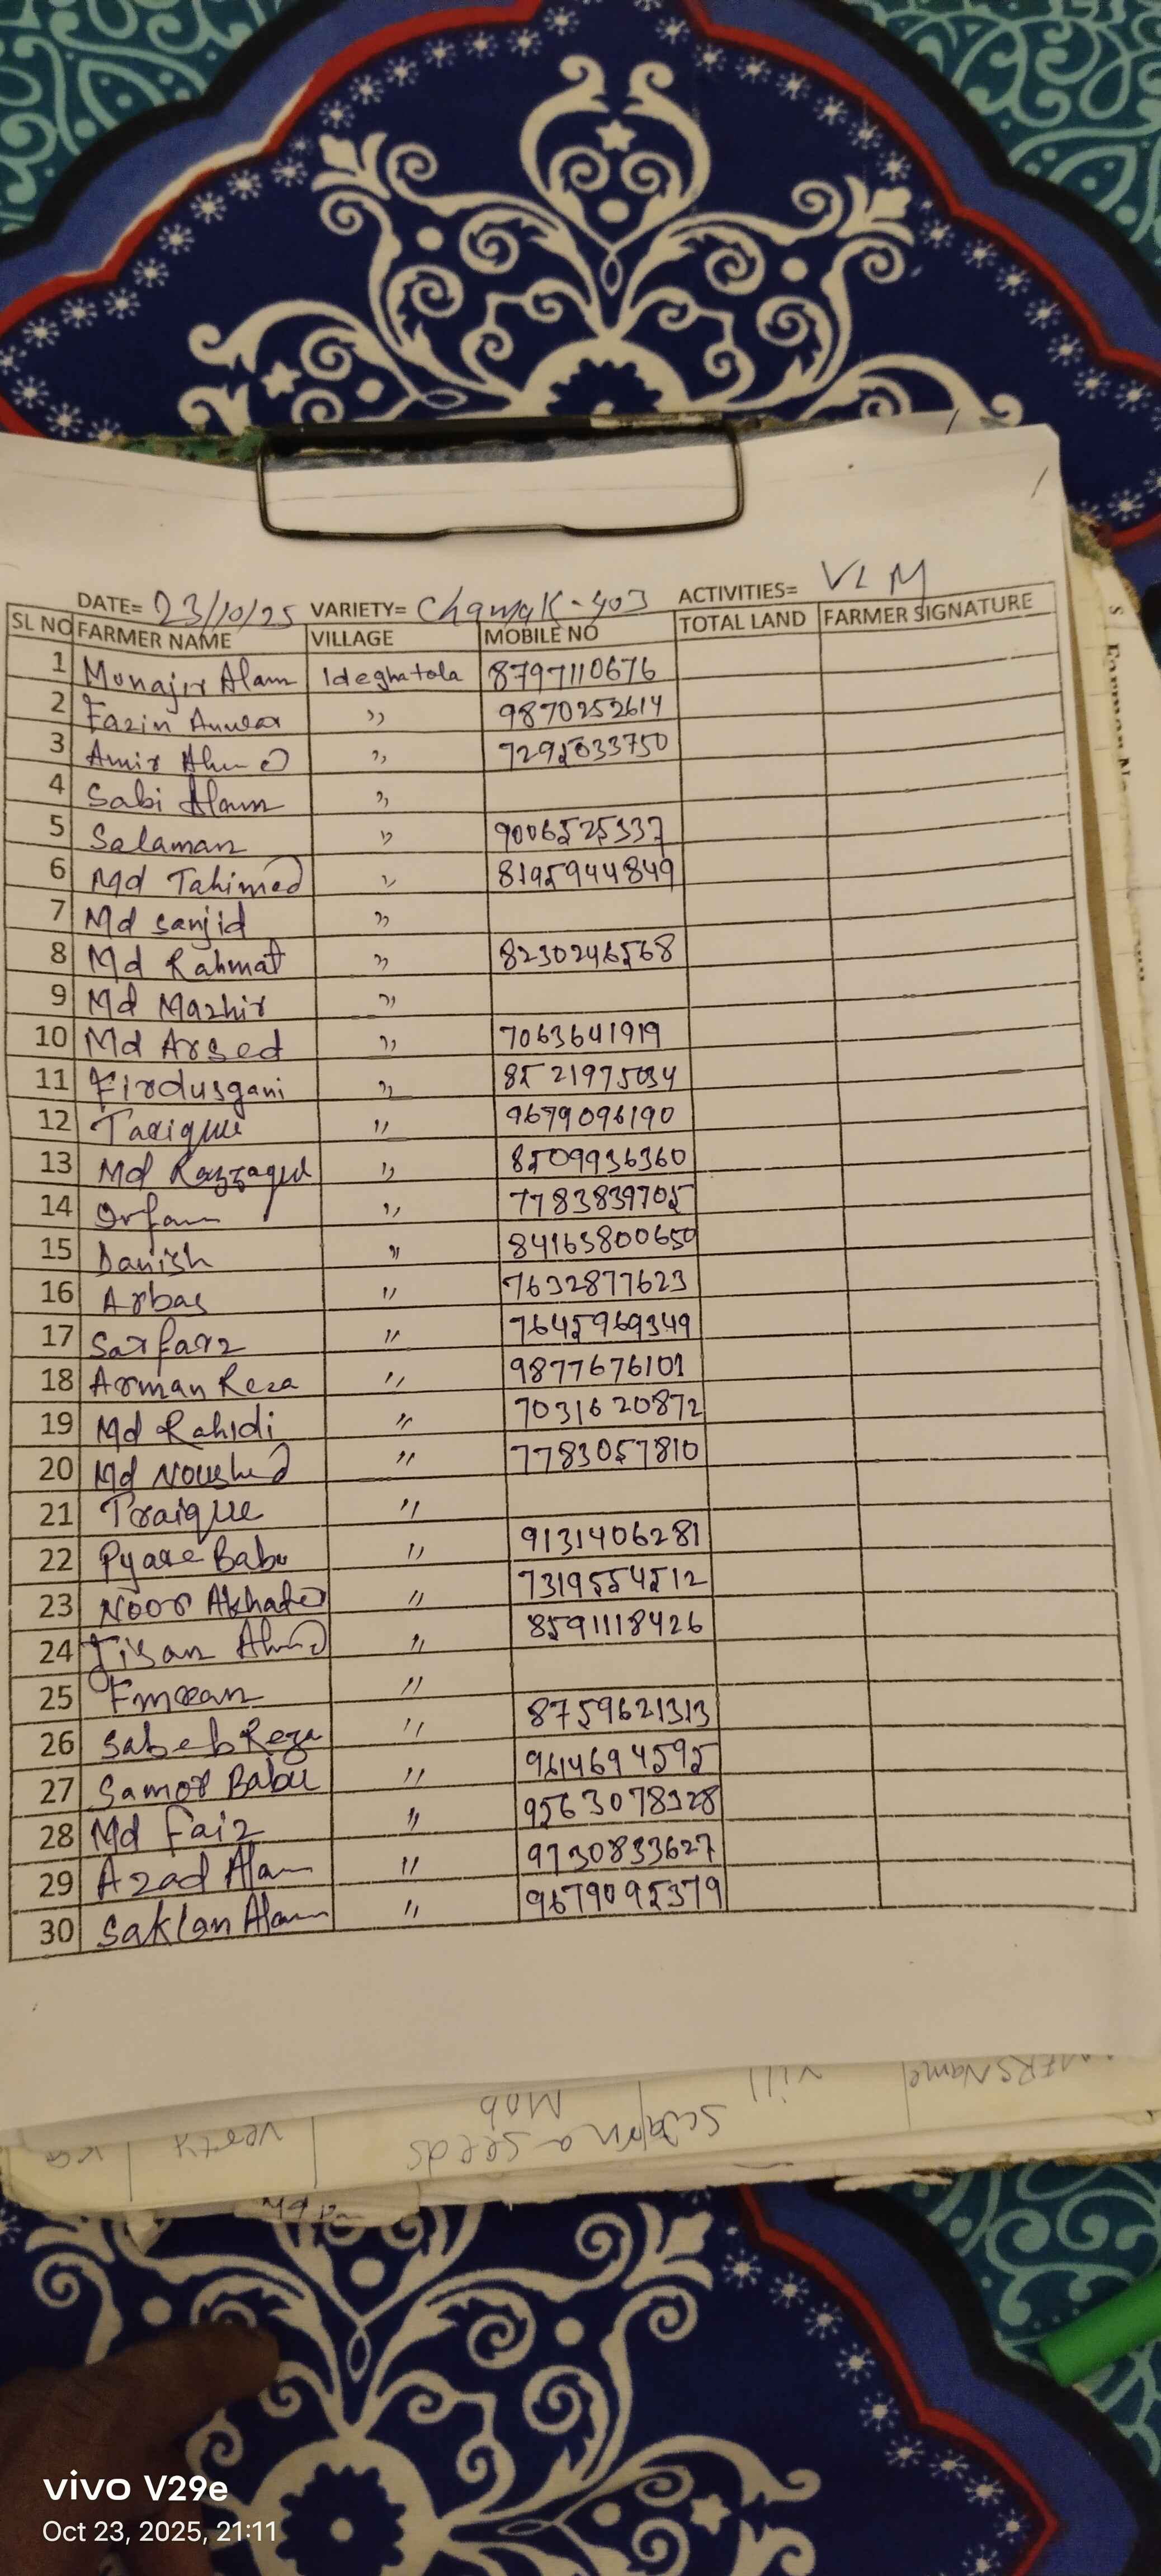 DATE= 23/10/25 VARIETY= Chamak-403 ACTIVITIES= VLM
SL NO FARMER NAME VILLAGE MOBILE NO TOTAL LAND FARMER SIGNATURE
1 Monajir Alam Ideghatola 8797110676
2 Fazin Anwar " 9870252614
3 Amir Ahmed " 7292033750
4 Sabi Alam "
5 Salaman " 9006525337
6 Md Tahimed " 8195944849
7 Md sanjid "
8 Md Rahmat " 8230246568
9 Md Mazhir "
10 Md Arsed " 7063641919
11 Firdusgani " 8521975034
12 Tarique " 9679096190
13 Md Razzaqul " 8509936360
14 Irfan " 7783839705
15 Danish " 84163800650
16 Arbas " 7632877623
17 Sarfarz " 7645969349
18 Arman Reza " 9877676101
19 Md Rahidi " 7031620872
20 Md Noushed " 7783057810
21 Traique "
22 Pyare Babu " 9131406281
23 Noor Akhater " 7319554512
24 Jisan Ahmed " 8591118426
25 Emran "
26 Sabeb Reza " 8759621313
27 Samor Babu " 9614694595
28 Md Faiz " 9563078328
29 Azad Alam " 9730833627
30 Saklan Alam " 9679095379
vivo V29e
Oct 23, 2025, 21:11